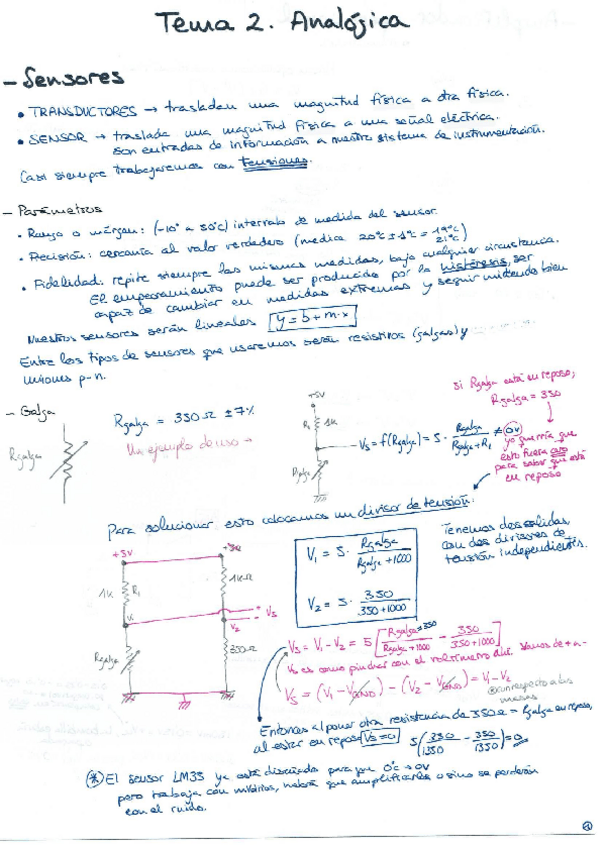 Tema 2. Analógica
- Sensores
• TRANSDUCTORES → trasladan una magnitud física a otra física.
• SENSOR → traslada una magnitud física a una señal eléctrica.
son entradas de información a nuestro sistema de instrumentación.
Casi siempre trabajaremos con tensiones.
- Parámetros
• Rango o márgen: (-10° a 50°C) intervalo de medida del sensor.
• Precisión: cercanía al valor verdadero (medica 20°C ± 1°C = 19°C
21°C)
• Fidelidad: repite siempre las mismas medidas, bajo cualquier circustancia.
El empeoramiento puede ser producido por la histéresis, ser
capaz de cambiar en medidas extremas y seguir midiendo bien
Nuestros sensores serán lineales y = b + m·x
Entre los tipos de sensores que usaremos serán resistivos (galgas) y
uniones p-n.
- Galga
Rgalga = 350 Ω ± 7%
Un ejemplo de uso →
Rgalga
+5V
R1 1K
Rgalga
Vs = f(Rgalga) = 5 · Rgalga / Rgalga + R1 ≠ 0V
si Rgalga está en reposo,
Rgalga = 350
yo querría que
esto fuera cero
para saber que está
en reposo
Para solucionar esto colocamos un divisor de tensión.
+5V
1K R1
V1
Rgalga
1KΩ
+ Vs -
V2
350Ω
V1 = 5 · Rgalga / Rgalga + 1000
V2 = 5 · 350 / 350 + 1000
Tenemos dos salidas,
con dos divisores de
tensión independientes.
Vs = V1 - V2 = 5 [ Rgalga / Rgalga + 1000 - 350 / 350 + 1000 ]
Vs es como pinchar con el voltímetro ahí. Vamos de + a -
Vs = (V1 - VGND) - (V2 - VGND) = V1 - V2
con respecto a las
masas
Entonces al poner otra resistencia de 350Ω = Rgalga en reposo,
al estar en reposo Vs = 0 5 ( 350 / 1350 - 350 / 1350 ) = 0
(*) El sensor LM35 ya está diseñado para que 0°C → 0V
pero trabaja con milivoltios, habrá que amplificarlos o sino se perderán
con el ruido.